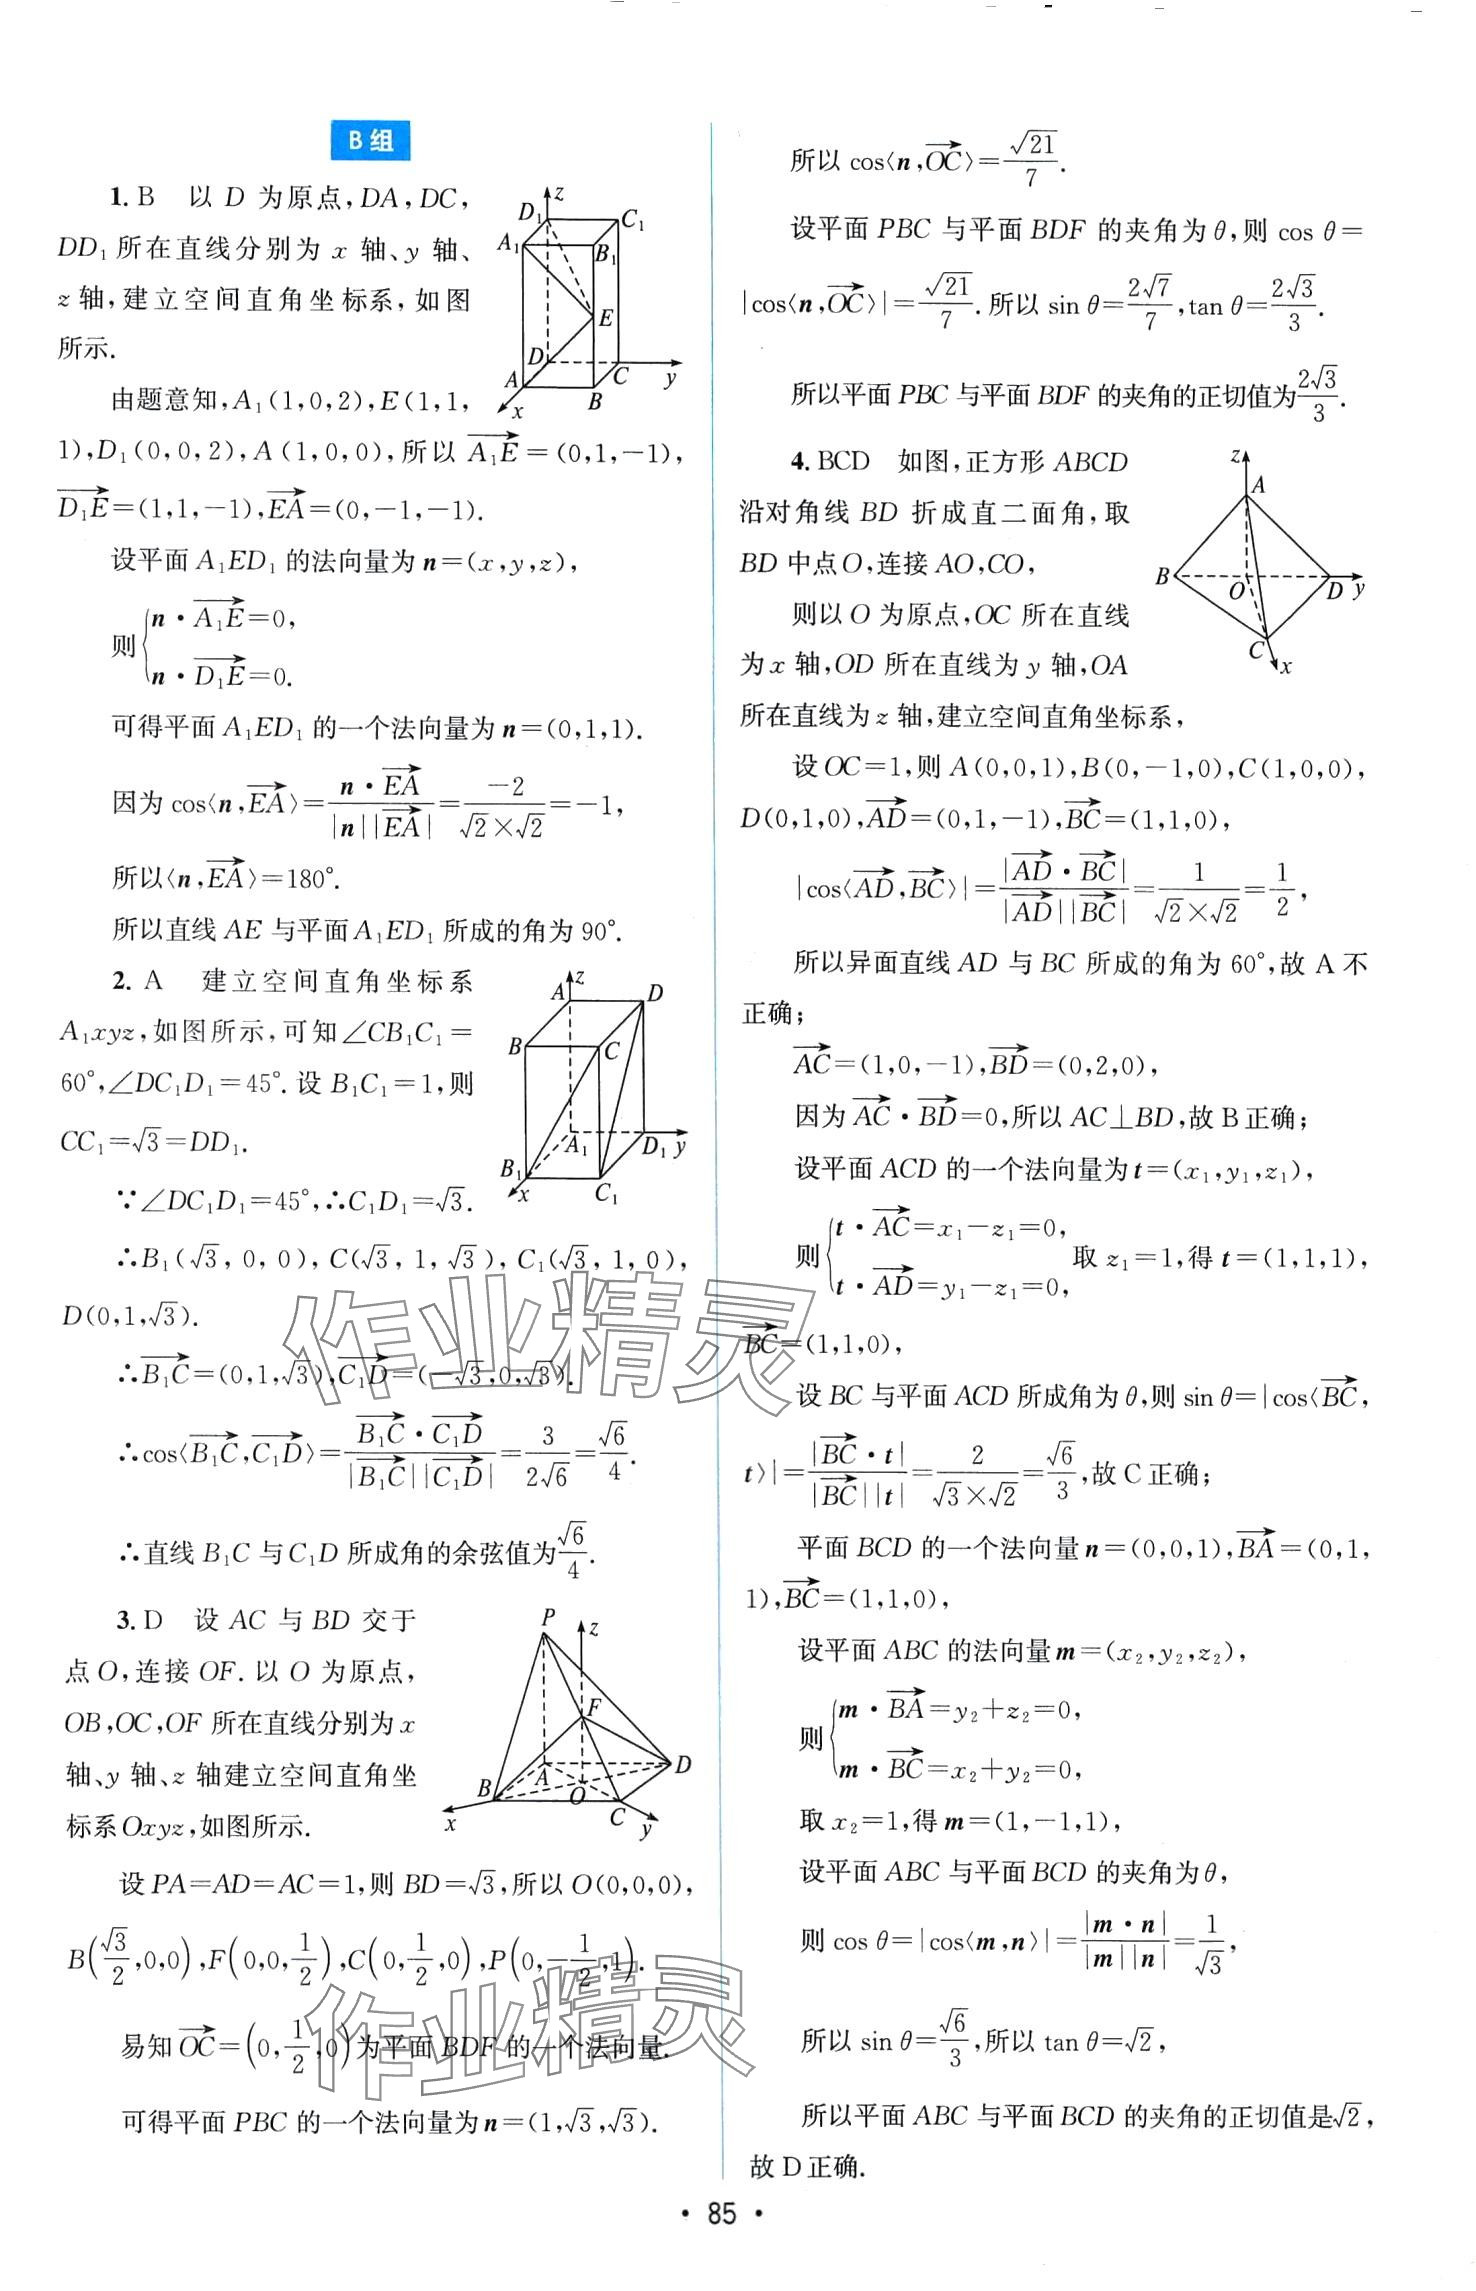 B组
1. B　以 D 为原点,DA,DC,
DD₁所在直线分别为 x 轴、y 轴、
z轴,建立空间直角坐标系,如图
所示.
z
D₁
C₁
A₁
B₁
E
D
A
B
C
y
x
由题意知,A₁(1,0,2),E(1,1,
1),D₁(0,0,2),A(1,0,0),所以 $\overrightarrow{A_1E}$=(0,1,−1),
$\overrightarrow{D_1E}$=(1,1,−1),$\overrightarrow{EA}$=(0,−1,−1).
设平面 A₁ED₁ 的法向量为 n=(x,y,z),
则 { n·$\overrightarrow{A_1E}$=0,
n·$\overrightarrow{D_1E}$=0.
可得平面 A₁ED₁ 的一个法向量为 n=(0,1,1).
因为 cos⟨n,$\overrightarrow{EA}$⟩=$\frac{n·\overrightarrow{EA}}{|n||\overrightarrow{EA}|}$=$\frac{-2}{\sqrt{2}×\sqrt{2}}$=−1,
所以⟨n,$\overrightarrow{EA}$⟩=180°.
所以直线 AE 与平面A₁ED₁ 所成的角为 90°.
2. A　建立空间直角坐标系
A₁xyz,如图所示,可知∠CB₁C₁=
60°,∠DC₁D₁=45°.设 B₁C₁=1,则
CC₁=√3=DD₁.
z
A
D
B
C
A₁
D₁
y
B₁
x
C₁
∵∠DC₁D₁=45°,∴C₁D₁=√3.
∴B₁(√3, 0, 0), C(√3, 1, √3), C₁(√3, 1, 0),
D(0,1,√3).
∴$\overrightarrow{B_1C}$=(0,1,√3),$\overrightarrow{C_1D}$=(−√3,0,√3).
∴cos⟨$\overrightarrow{B_1C}$,$\overrightarrow{C_1D}$⟩=$\frac{\overrightarrow{B_1C}·\overrightarrow{C_1D}}{|\overrightarrow{B_1C}||\overrightarrow{C_1D}|}$=$\frac{3}{2\sqrt{6}}$=$\frac{\sqrt{6}}{4}$.
∴直线 B₁C 与C₁D 所成角的余弦值为$\frac{\sqrt{6}}{4}$.
3. D　设 AC 与 BD 交于
点 O,连接 OF.以 O 为原点,
OB,OC,OF 所在直线分别为 x
轴、y 轴、z 轴建立空间直角坐
标系Oxyz,如图所示.
P
z
F
D
B
A
O
C
x
y
设 PA=AD=AC=1,则 BD=√3,所以 O(0,0,0),
B($\frac{\sqrt{3}}{2}$,0,0),F(0,0,$\frac{1}{2}$),C(0,$\frac{1}{2}$,0),P(0,−$\frac{1}{2}$,1).
易知$\overrightarrow{OC}$=(0,$\frac{1}{2}$,0)为平面 BDF 的一个法向量.
可得平面 PBC 的一个法向量为 n=(1,√3,√3).
所以 cos⟨n,$\overrightarrow{OC}$⟩=$\frac{\sqrt{21}}{7}$.
设平面 PBC 与平面 BDF 的夹角为 θ,则 cos θ=
|cos⟨n,$\overrightarrow{OC}$⟩|=$\frac{\sqrt{21}}{7}$.所以 sin θ=$\frac{2\sqrt{7}}{7}$,tan θ=$\frac{2\sqrt{3}}{3}$.
所以平面 PBC 与平面 BDF 的夹角的正切值为$\frac{2\sqrt{3}}{3}$.
4. BCD　如图,正方形 ABCD
沿对角线 BD 折成直二面角,取
BD 中点O,连接 AO,CO,
则以 O 为原点,OC 所在直线
为x 轴,OD 所在直线为 y 轴,OA
所在直线为z 轴,建立空间直角坐标系,
z
A
B
O
D
y
C
x
设 OC=1,则 A(0,0,1),B(0,−1,0),C(1,0,0),
D(0,1,0),$\overrightarrow{AD}$=(0,1,−1),$\overrightarrow{BC}$=(1,1,0),
|cos⟨$\overrightarrow{AD}$,$\overrightarrow{BC}$⟩|=$\frac{|\overrightarrow{AD}·\overrightarrow{BC}|}{|\overrightarrow{AD}||\overrightarrow{BC}|}$=$\frac{1}{\sqrt{2}×\sqrt{2}}$=$\frac{1}{2}$,
所以异面直线 AD 与 BC 所成的角为 60°,故 A 不
正确;
$\overrightarrow{AC}$=(1,0,−1),$\overrightarrow{BD}$=(0,2,0),
因为$\overrightarrow{AC}$·$\overrightarrow{BD}$=0,所以 AC⊥BD,故 B 正确;
设平面 ACD 的一个法向量为 t=(x₁,y₁,z₁),
则 { t·$\overrightarrow{AC}$=x₁−z₁=0,
t·$\overrightarrow{AD}$=y₁−z₁=0, 取 z₁=1,得 t=(1,1,1),
$\overrightarrow{BC}$=(1,1,0),
设 BC 与平面 ACD 所成角为 θ,则 sin θ=|cos⟨$\overrightarrow{BC}$,
t⟩|=$\frac{|\overrightarrow{BC}·t|}{|\overrightarrow{BC}||t|}$=$\frac{2}{\sqrt{3}×\sqrt{2}}$=$\frac{\sqrt{6}}{3}$,故 C 正确;
平面 BCD 的一个法向量 n=(0,0,1),$\overrightarrow{BA}$=(0,1,
1),$\overrightarrow{BC}$=(1,1,0),
设平面 ABC 的法向量 m=(x₂,y₂,z₂),
则 { m·$\overrightarrow{BA}$=y₂+z₂=0,
m·$\overrightarrow{BC}$=x₂+y₂=0,
取 x₂=1,得 m=(1,−1,1),
设平面 ABC 与平面 BCD 的夹角为 θ,
则 cos θ=|cos⟨m,n⟩|=$\frac{|m·n|}{|m||n|}$=$\frac{1}{\sqrt{3}}$,
所以 sin θ=$\frac{\sqrt{6}}{3}$,所以 tan θ=√2,
所以平面 ABC 与平面 BCD 的夹角的正切值是√2,
故 D 正确.
作业精灵
作业精灵
· 85 ·